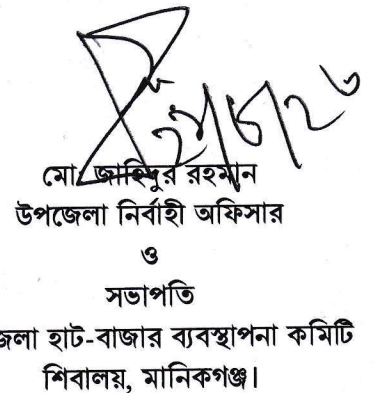 ২৯/৬/২৬
মোঃ জাহিদুর রহমান
উপজেলা নির্বাহী অফিসার
ও
সভাপতি
জেলা হাট-বাজার ব্যবস্থাপনা কমিটি
শিবালয়, মানিকগঞ্জ।